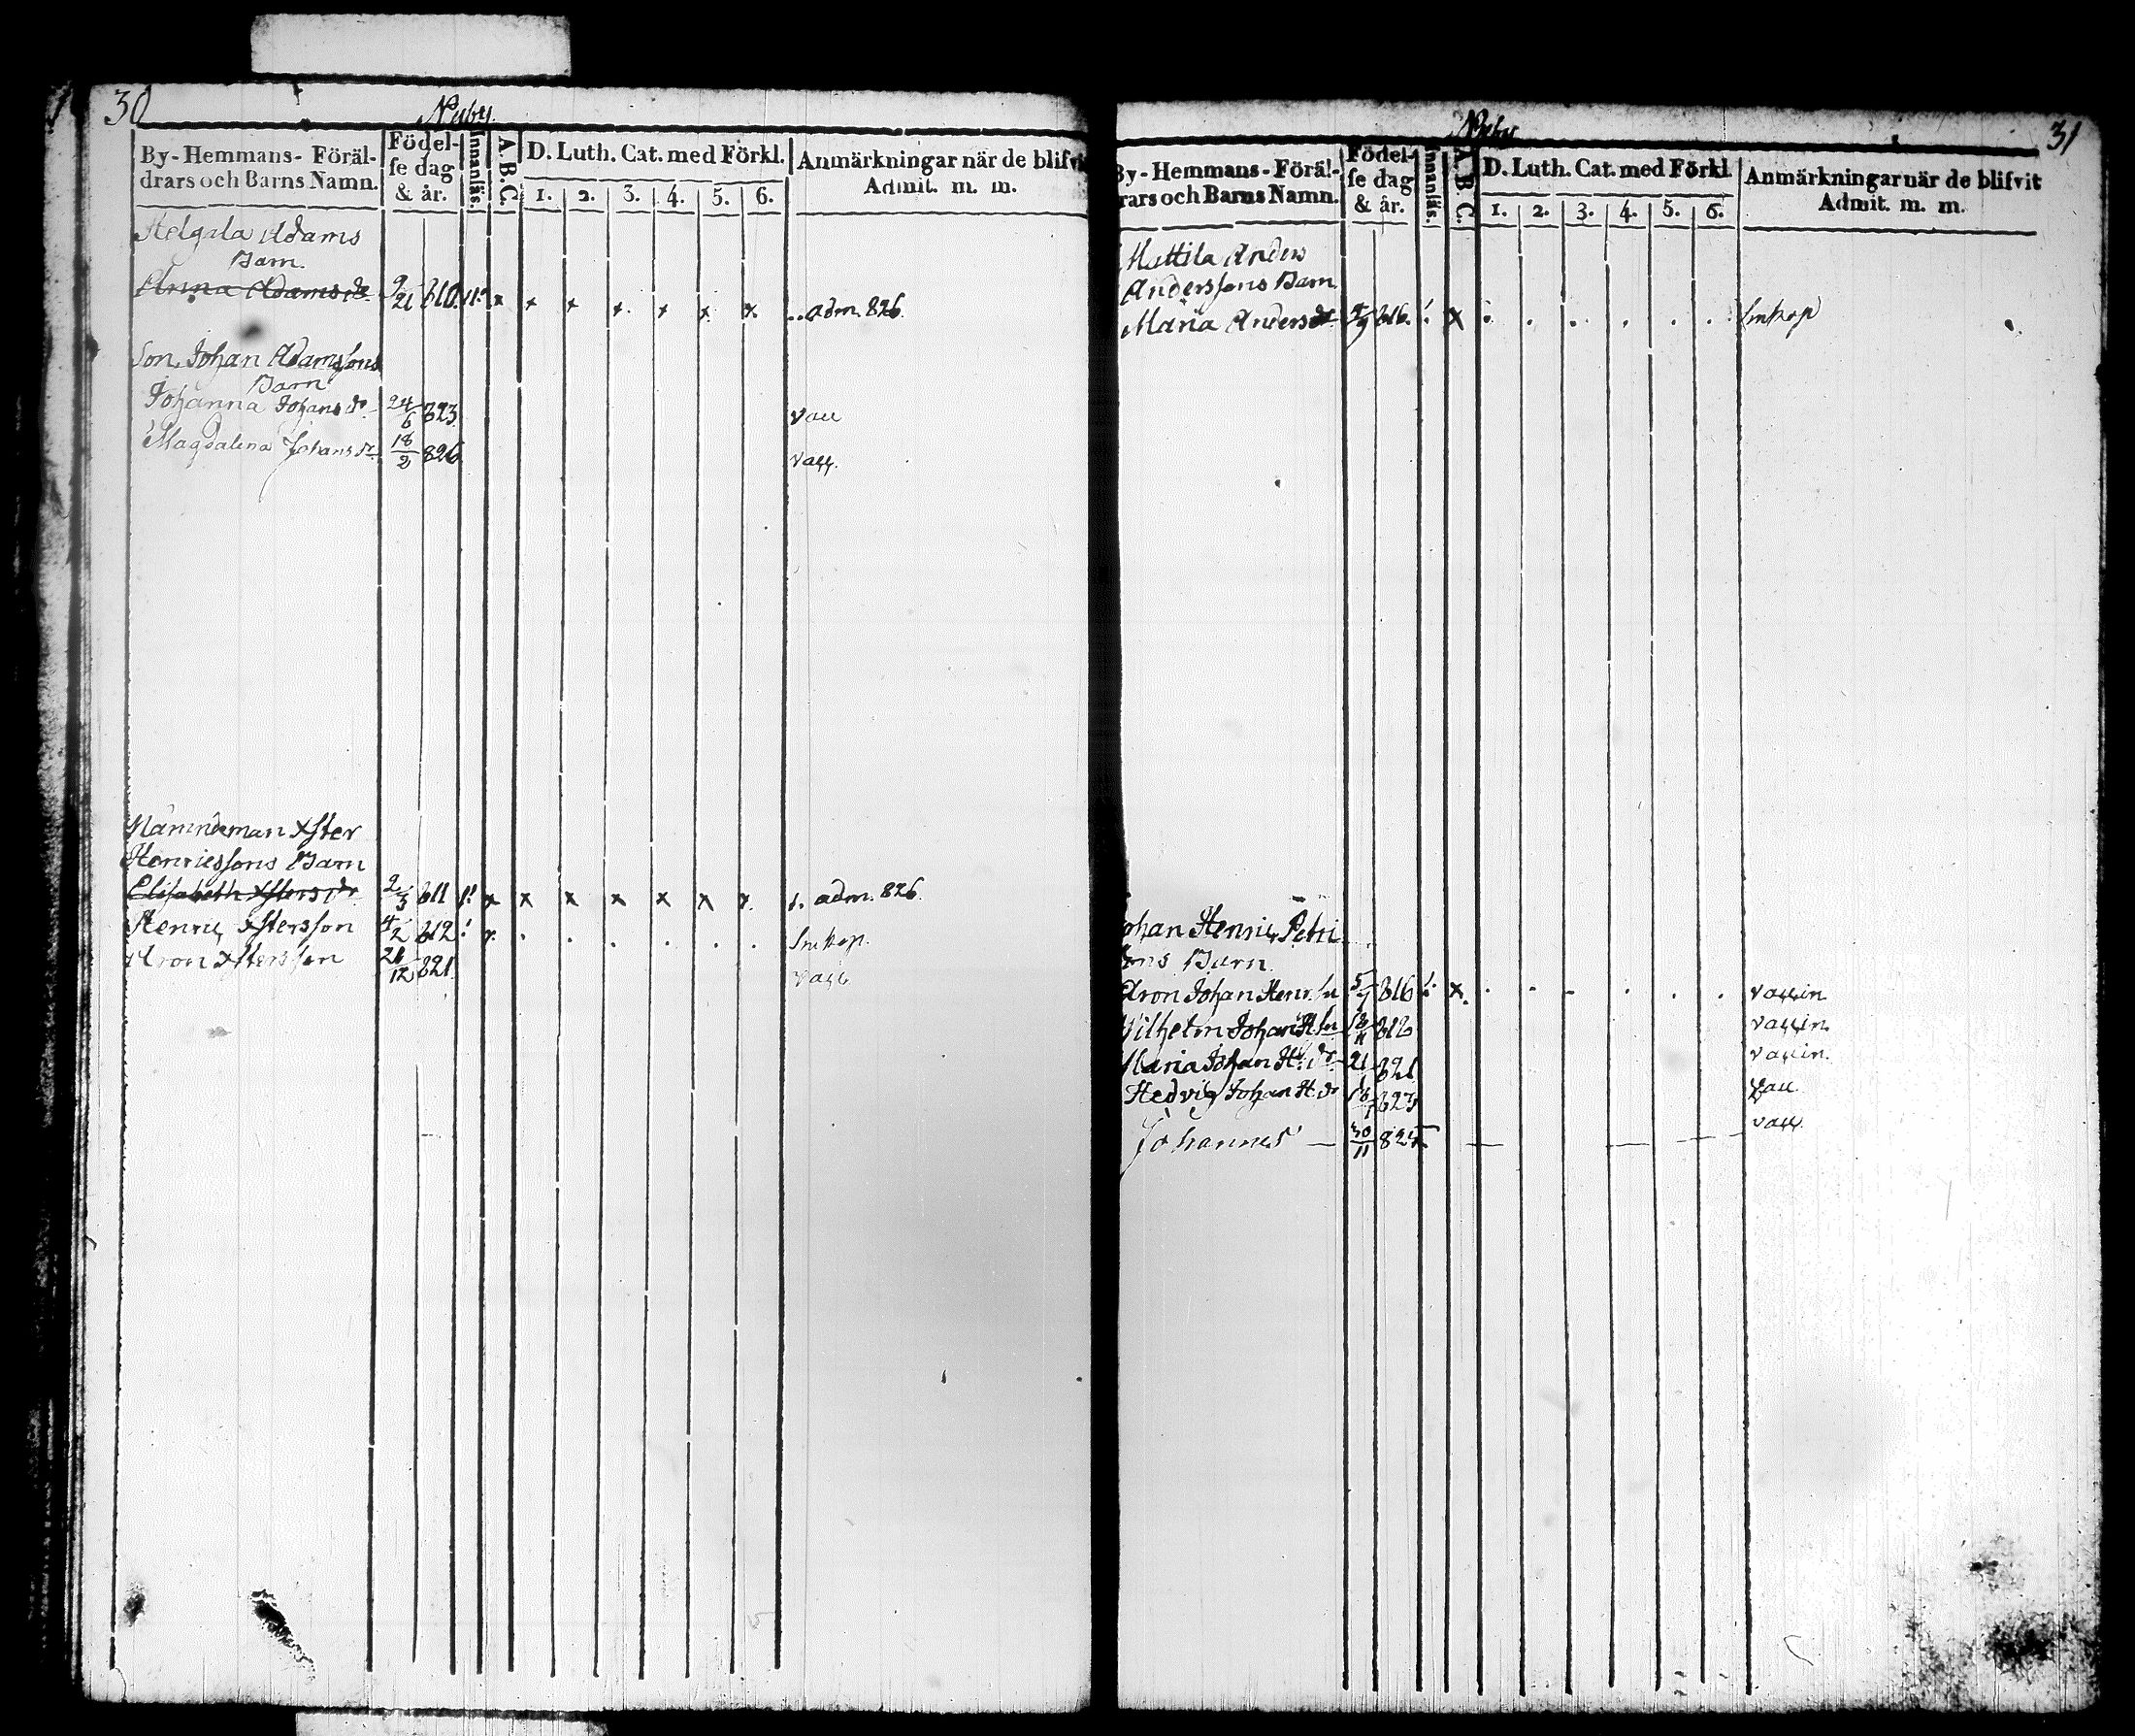 30
Nyby.
By-Hemmans-Föräl-
drars och Barns Namn.
Födel-
se dag
& år.
Innanläs.
A.B.C.
D. Luth. Cat. med Förkl.
1. 2. 3. 4. 5. 6.
Anmärkningar när de blifvi
Admit. m. m.
Helgala Adams
Barn.
Anna Adams dr 9/21 810. x x x x x x x adm. 826.
Son, Johan Adamssons
Barn
Johanna Johans dr 24/6 823. vacc
Magdalena Johans dr 18/2 826 vacc.
Nämndeman Xster
Henricssons Barn
Elisabeth Xsters dr 2/3 811 x x x x x x x adm. 826.
Henric Xstersson 4/2 812 Smkop.
Aron Xstersson 26/12 821. vacc
31
Nyby
By-Hemmans-Föräl-
rars och Barns Namn.
Födel-
se dag
& år.
Innanläs.
A.B.C.
D. Luth. Cat. med Förkl
1. 2. 3. 4. 5. 6.
Anmärkningar när de blifvit
Admit. m. m.
Mattila Anders
Anderssons Barn
Maria Anders dr 816. x Smkop
Johan Henric Petri
sons Barn.
Aron Johan Henr. sn 5/7 816 x vaccin
Wilhelm Johan H sn 18/11 818 vaccin.
Maria Johan H. dr 21 821 vaccin.
Hedvig Johan H dr 16/1 823 vacc.
Johannes — 30/11 825 — vacc.